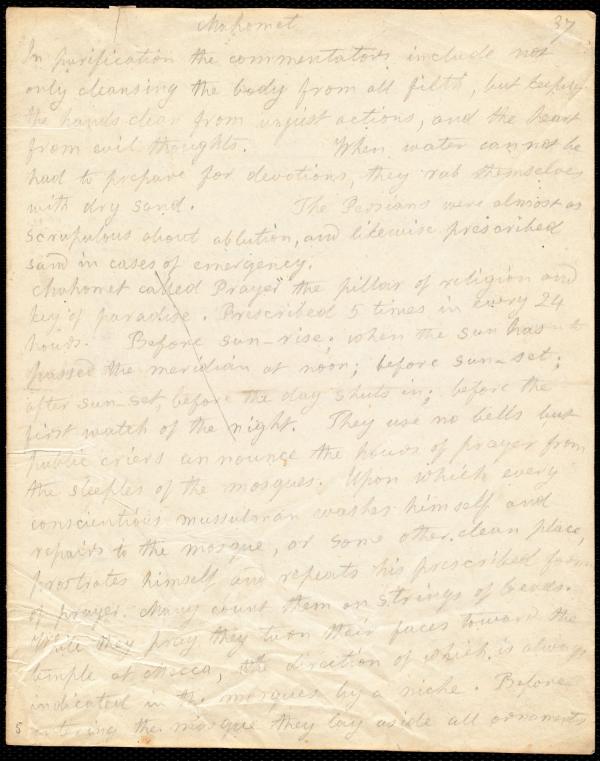 Mahomet 37
In purification the commentators include not
only cleansing the body from all filth, but keeping
the hands clear from unjust actions, and the heart
from evil thoughts. When water cannot be
had to prepare for devotions, they rub themselves
with dry sand. The Persians were almost as
scrupulous about ablution, and likewise prescribed
sand in cases of emergency.
Mahomet called Prayer "the pillar of religion and
key of paradise. Prescribed 5 times in every 24
hours. Before sun-rise; when the sun has
passed the meridian at noon; before sun-set;
after sun-set, before the day shuts in; before the
first watch of the night. They use no bells but
public criers announce the hours of prayer from
the steeples of the mosques. Upon which every
conscientious mussulman washes himself and
repairs to the mosque, or some other clean place,
prostrates himself and repeats his prescribed form
of prayer. Many count them on strings of beads.
While they pray they turn their faces toward the
temple at Mecca, the direction of which is always
indicated in the mosques by a niche. Before
entering the mosque they lay aside all ornaments
5